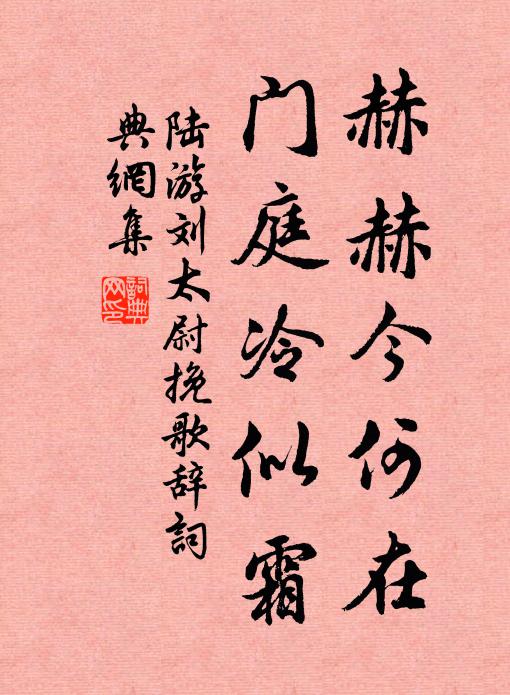 赫赫今何在
门庭冷似霜
陆游刘太尉挽歌辞詞
典網集
詞典
网印